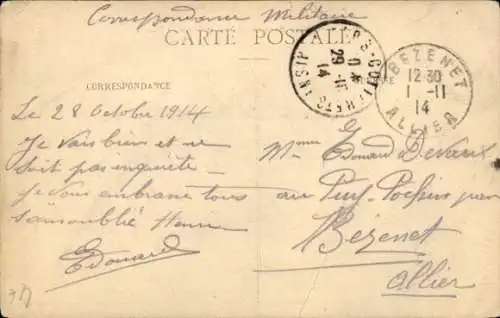 Correspondance Militaire
CARTE POSTALE
CORRESPONDANCE
Le 28 Octobre 1914
Je vais bien et ne
soit pas inquiète
Je vous embrasse tous
sans oublié Henri
Edouard
29 -10
14
BEZENET
12 30
1 -11
14
ALLIER
Mme Edouard Devaux
au Puy par
Bézenet
Allier